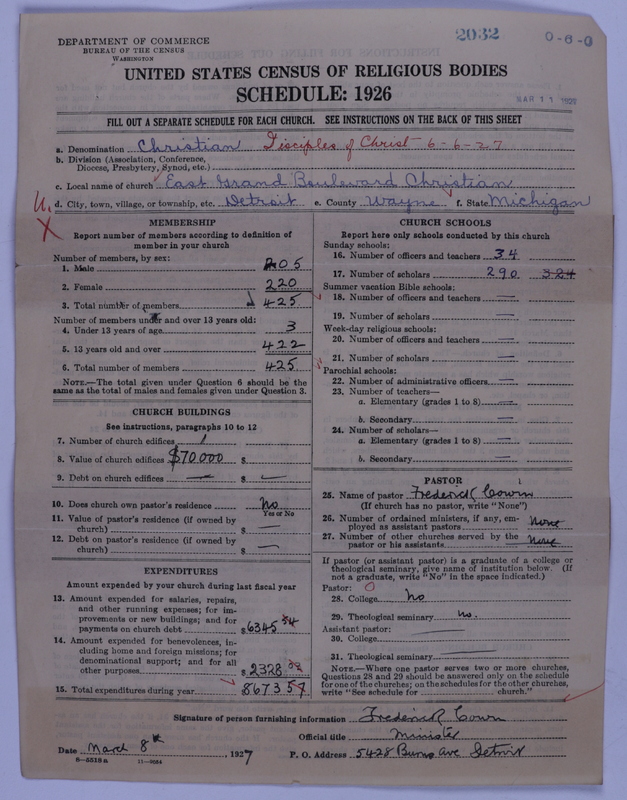 2032
0-6-0
DEPARTMENT OF COMMERCE
BUREAU OF THE CENSUS
WASHINGTON
UNITED STATES CENSUS OF RELIGIOUS BODIES
SCHEDULE: 1926
MAR 11
FILL OUT A SEPARATE SCHEDULE FOR EACH CHURCH. SEE INSTRUCTIONS ON THE BACK OF THIS SHEET
a. Denomination Christian Disciples of Christ 6-6-27
b. Division (Association, Conference,
Diocese, Presbytery, Synod, etc.)
c. Local name of church East Grand Boulevard Christian
d. City, town, village, or township, etc. Detroit e. County Wayne f. State Michigan
X
MEMBERSHIP
Report number of members according to definition of
member in your church
Number of members, by sex:
1. Male 205
2. Female 220
3. Total number of members 425
Number of members under and over 13 years old:
4. Under 13 years of age 3
5. 13 years old and over 422
6. Total number of members 425
NOTE.—The total given under Question 6 should be the
same as the total of males and females given under Question 3.
CHURCH BUILDINGS
See instructions, paragraphs 10 to 12
7. Number of church edifices 1
8. Value of church edifices $70000 $
9. Debt on church edifices — $ —
10. Does church own pastor's residence No
Yes or No
11. Value of pastor's residence (if owned by
church) $ —
12. Debt on pastor's residence (if owned by
church) $ —
EXPENDITURES
Amount expended by your church during last fiscal year
13. Amount expended for salaries, repairs,
and other running expenses; for im-
provements or new buildings; and for
payments on church debt $6345 54
14. Amount expended for benevolences, in-
cluding home and foreign missions; for
denominational support; and for all
other purposes $2328
15. Total expenditures during year 8673 57
CHURCH SCHOOLS
Report here only schools conducted by this church
Sunday schools:
16. Number of officers and teachers 34
17. Number of scholars 290 324
Summer vacation Bible schools:
18. Number of officers and teachers —
19. Number of scholars —
Week-day religious schools:
20. Number of officers and teachers —
21. Number of scholars —
Parochial schools:
22. Number of administrative officers —
23. Number of teachers—
a. Elementary (grades 1 to 8) —
b. Secondary —
24. Number of scholars—
a. Elementary (grades 1 to 8) —
b. Secondary —
PASTOR
25. Name of pastor Frederick Cowin
(If church has no pastor, write "None")
26. Number of ordained ministers, if any, em-
ployed as assistant pastors None
27. Number of other churches served by the
pastor or his assistants None
If pastor (or assistant pastor) is a graduate of a college or
theological seminary, give name of institution below. (If
not a graduate, write "No" in the space indicated.)
Pastor: O
28. College No
29. Theological seminary No.
Assistant pastor: —
30. College —
31. Theological seminary —
NOTE.—Where one pastor serves two or more churches,
Questions 28 and 29 should be answered only on the schedule
for one of the churches; on the schedules for the other churches,
write "See schedule for ........ church."
Signature of person furnishing information Frederick Cowin
Official title Minister
Date March 8th, 1927 P. O. Address 5428 Burns Ave Detroit
8—5519a 11—9034